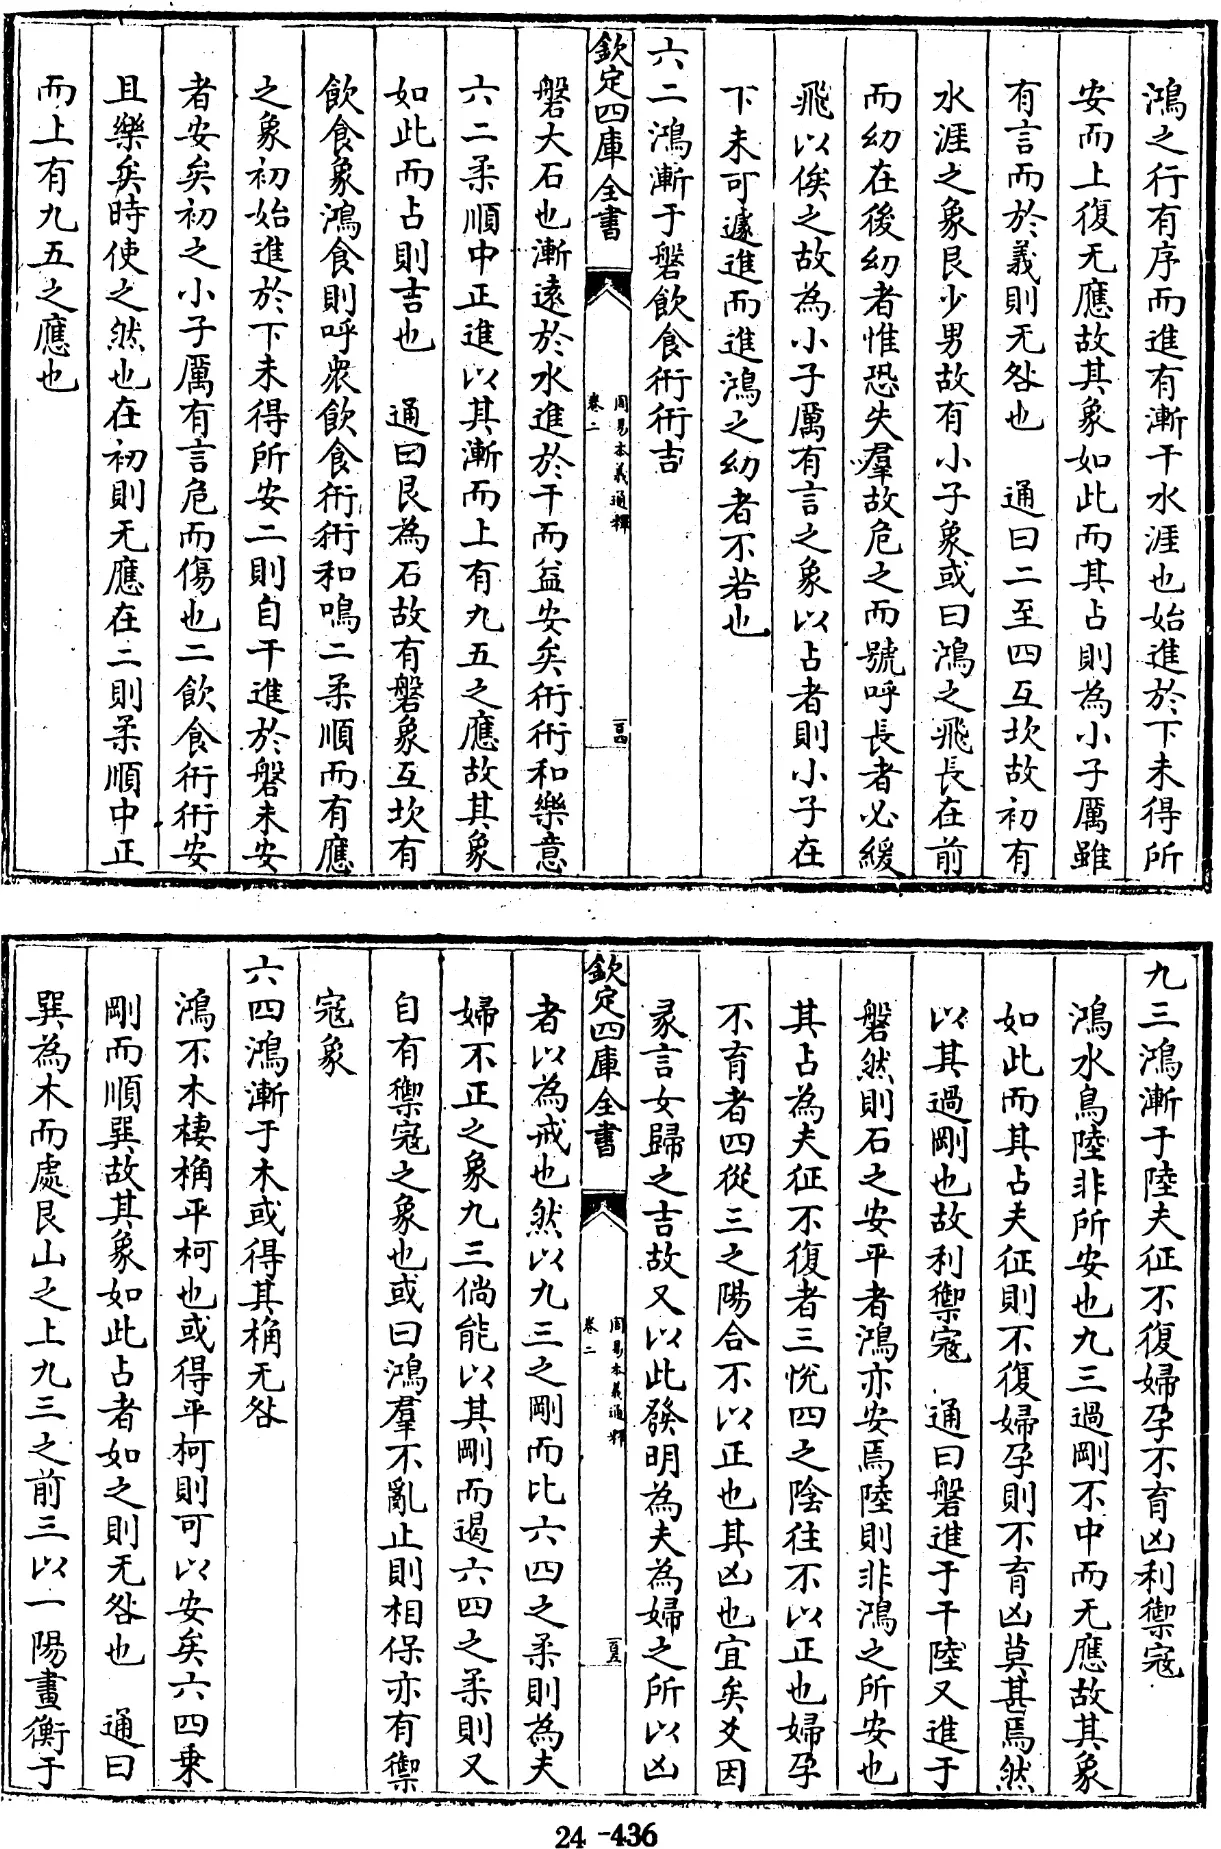 鴻之行有序而進有漸干水涯也始進於下未得所
安而上復无應故其象如此而其占則為小子厲雖
有言而於義則无咎也　通曰二至四互坎故初有
水涯之象艮少男故有小子象或曰鴻之飛長在前
而幼在後幼者惟恐失羣故危之而號呼長者必緩
飛以俟之故為小子厲有言之象以占者則小子在
下未可遽進而進鴻之幼者不若也
六二鴻漸于磐飲食衎衎吉
欽定四庫全書
周易本義通釋
卷二
一百四
磐大石也漸遠於水進於干而益安矣衎衎和樂意
六二柔順中正進以其漸而上有九五之應故其象
如此而占則吉也　通曰艮為石故有磐象互坎有
飲食象鴻食則呼衆飲食衎衎和鳴二柔順而有應
之象初始進於下未得所安二則自干進於磐未安
者安矣初之小子厲有言危而傷也二飲食衎衎安
且樂矣時使之然也在初則无應在二則柔順中正
而上有九五之應也
九三鴻漸于陸夫征不復婦孕不育凶利禦寇
鴻水鳥陸非所安也九三過剛不中而无應故其象
如此而其占夫征則不復婦孕則不育凶莫甚焉然
以其過剛也故利禦寇　通曰磐進于干陸又進于
磐然則石之安平者鴻亦安焉陸則非鴻之所安也
其占為夫征不復者三悅四之陰往不以正也婦孕
不育者四從三之陽合不以正也其凶也宜矣爻因
彖言女歸之吉故又以此發明為夫為婦之所以凶
欽定四庫全書
周易本義通釋
卷二
一百五
者以為戒也然以九三之剛而比六四之柔則為夫
婦不正之象九三倘能以其剛而遏六四之柔則又
自有禦寇之象也或曰鴻羣不亂止則相保亦有禦
寇象
六四鴻漸于木或得其桷无咎
鴻不木棲桷平柯也或得平柯則可以安矣六四乗
剛而順巽故其象如此占者如之則无咎也　通曰
巽為木而處艮山之上九三之前三以一陽畫衡于
24-436